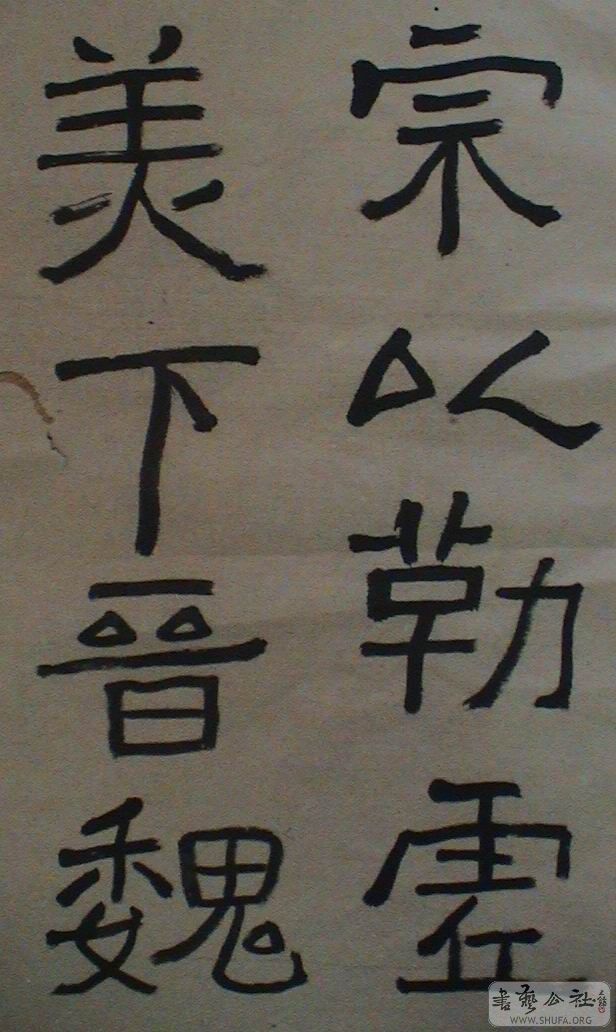 宗以勒虛
美下晉魏
書藝公社
WWW.SHUFA.ORG